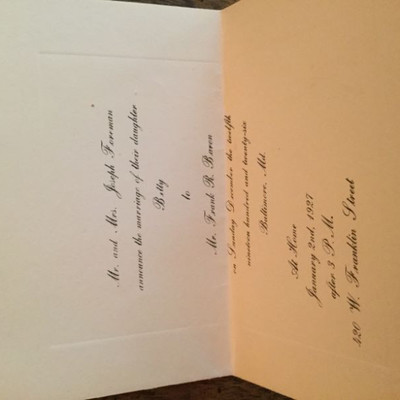 Mr. and Mrs. Joseph Foreman
announce the marriage of their daughter
Betty
to
Mr. Frank R. Baron
on Sunday December the twelfth
nineteen hundred and twenty-six
Baltimore, Md.
At Home
January 2nd, 1927
after 3 P.M.
420 W. Franklin Street